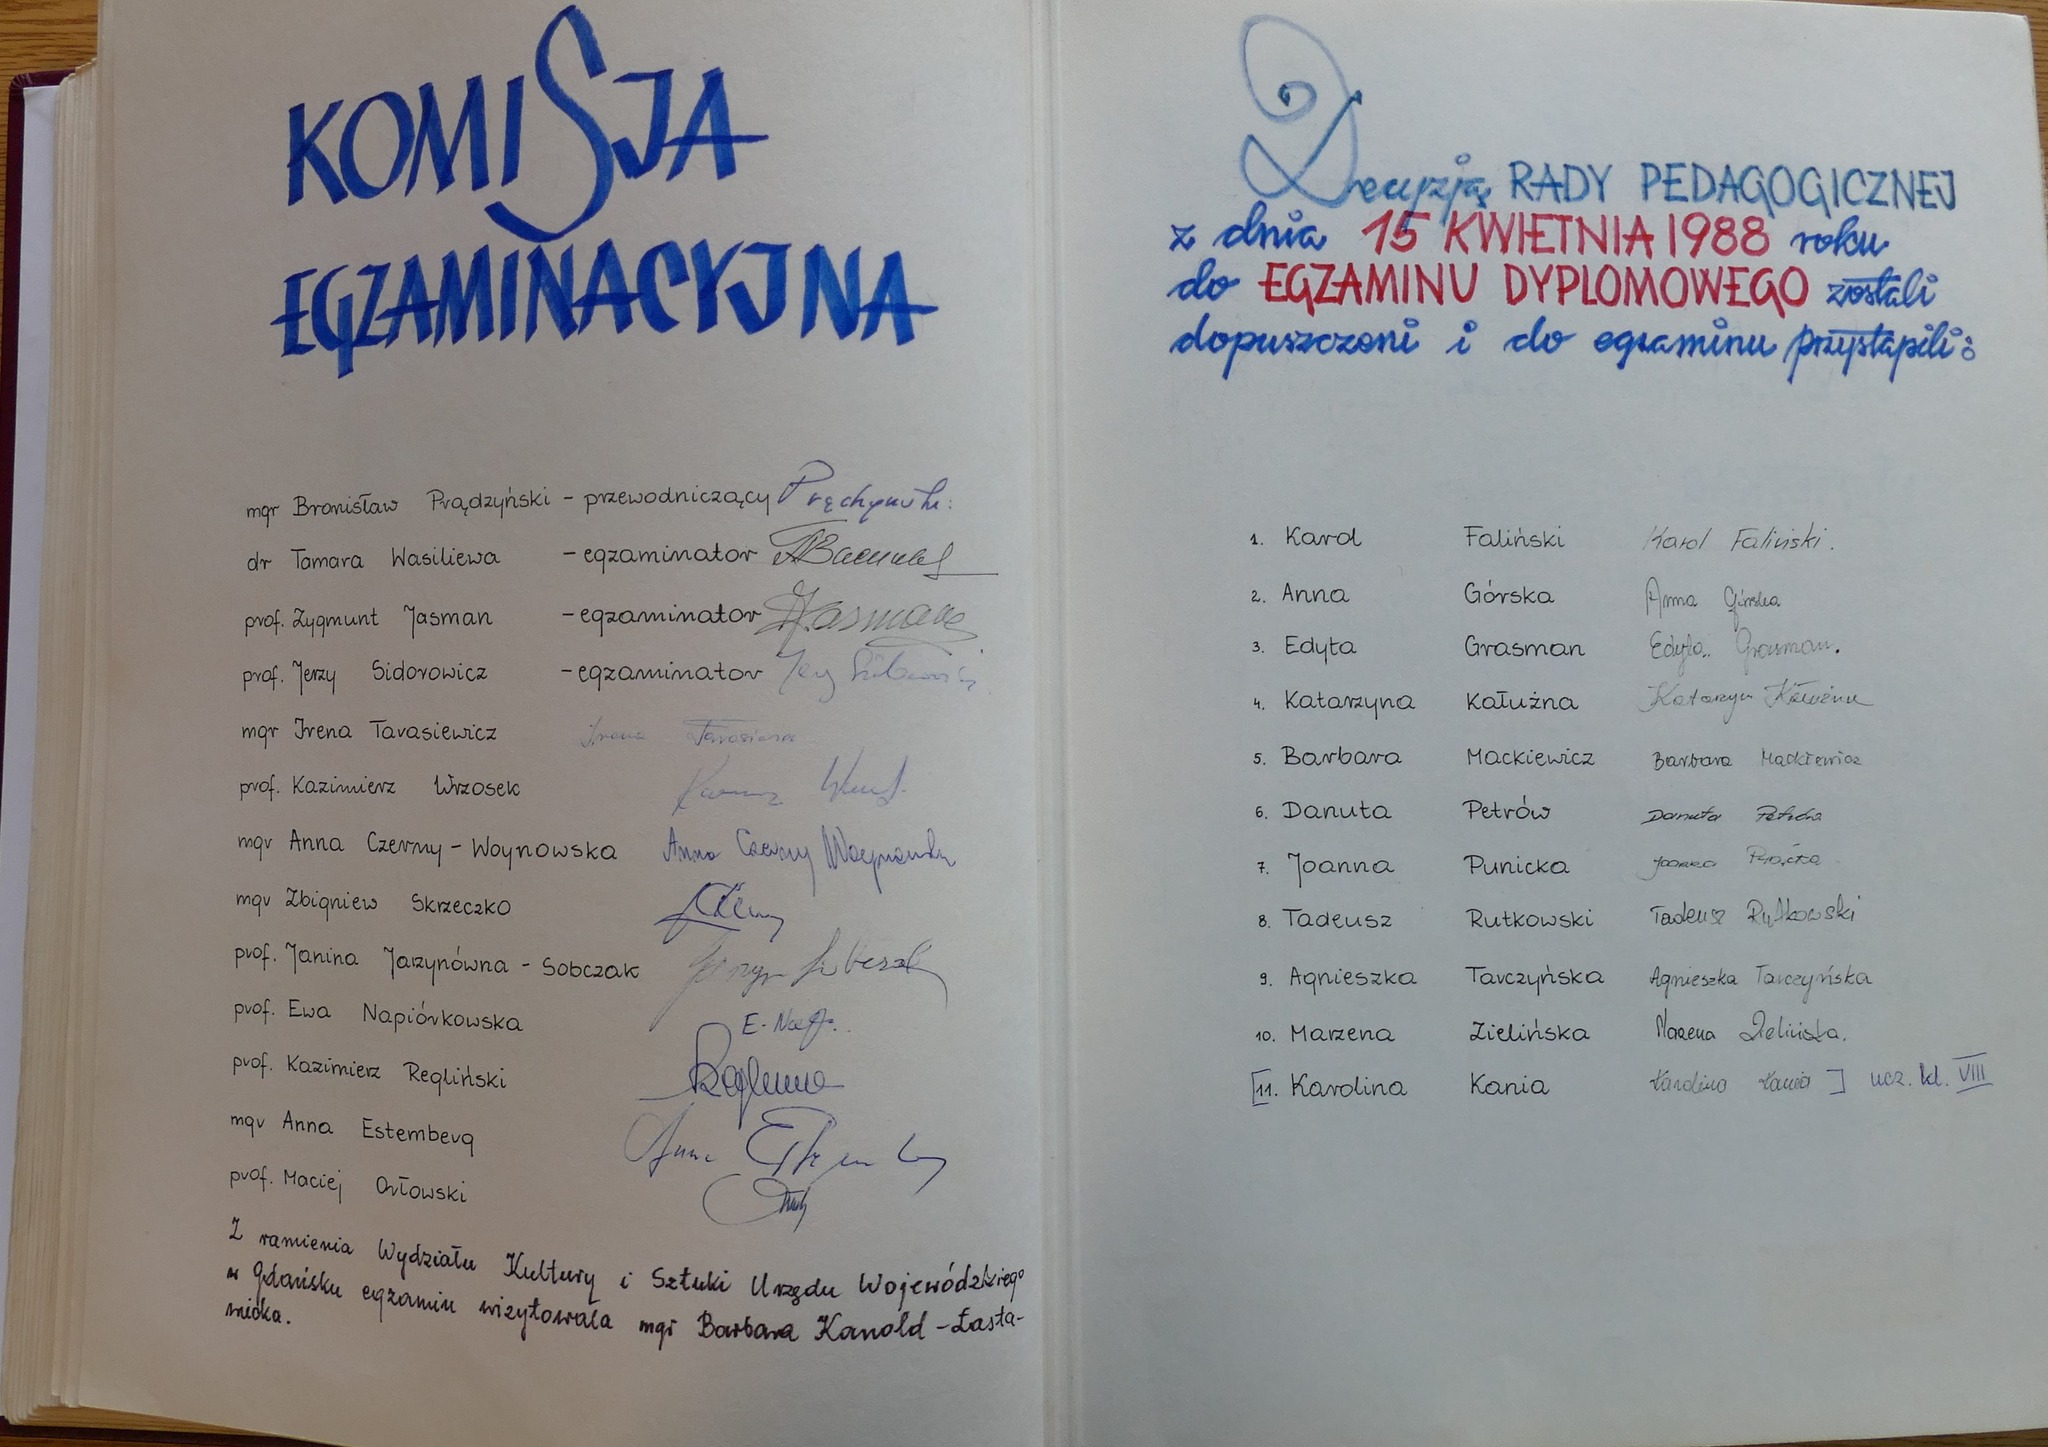 KOMISJA
EGZAMINACYJNA
mgr Bronisław Prądzyński - przewodniczący
dr Tamara Wasiliewa - egzaminator
prof. Zygmunt Jasman - egzaminator
prof. Jerzy Sidorowicz - egzaminator
mgr Irena Tarasiewicz
prof. Kazimierz Wrzosek
mgr Anna Czerny - Woynowska Anna Czerny Woynowska
mgr Zbigniew Skrzeczko
prof. Janina Jarzynówna - Sobczak
prof. Ewa Napiórkowska
prof. Kazimierz Regliński
mgr Anna Estemberg
prof. Maciej Orłowski
Z ramienia Wydziału Kultury i Sztuki Urzędu Wojewódzkiego
w Gdańsku egzamin wizytowała mgr Barbara Kanold - Łasta-
wiecka.
Decyzją RADY PEDAGOGICZNEJ
z dnia 15 KWIETNIA 1988 roku
do EGZAMINU DYPLOMOWEGO zostali
dopuszczeni i do egzaminu przystąpili:
1. Karol Faliński Karol Faliński.
2. Anna Górska Anna Górska
3. Edyta Grasman Edyta Grasman.
4. Katarzyna Kałużna Katarzyna Kałużna
5. Barbara Mackiewicz Barbara Mackiewicz
6. Danuta Petrów Danuta Petrów
7. Joanna Punicka Joanna
8. Tadeusz Rutkowski Tadeusz Rutkowski
9. Agnieszka Tarczyńska Agnieszka Tarczyńska
10. Marzena Zielińska Marzena Zielińska.
[11. Karolina Kania Karolina Kania ] ucz. kl. VIII